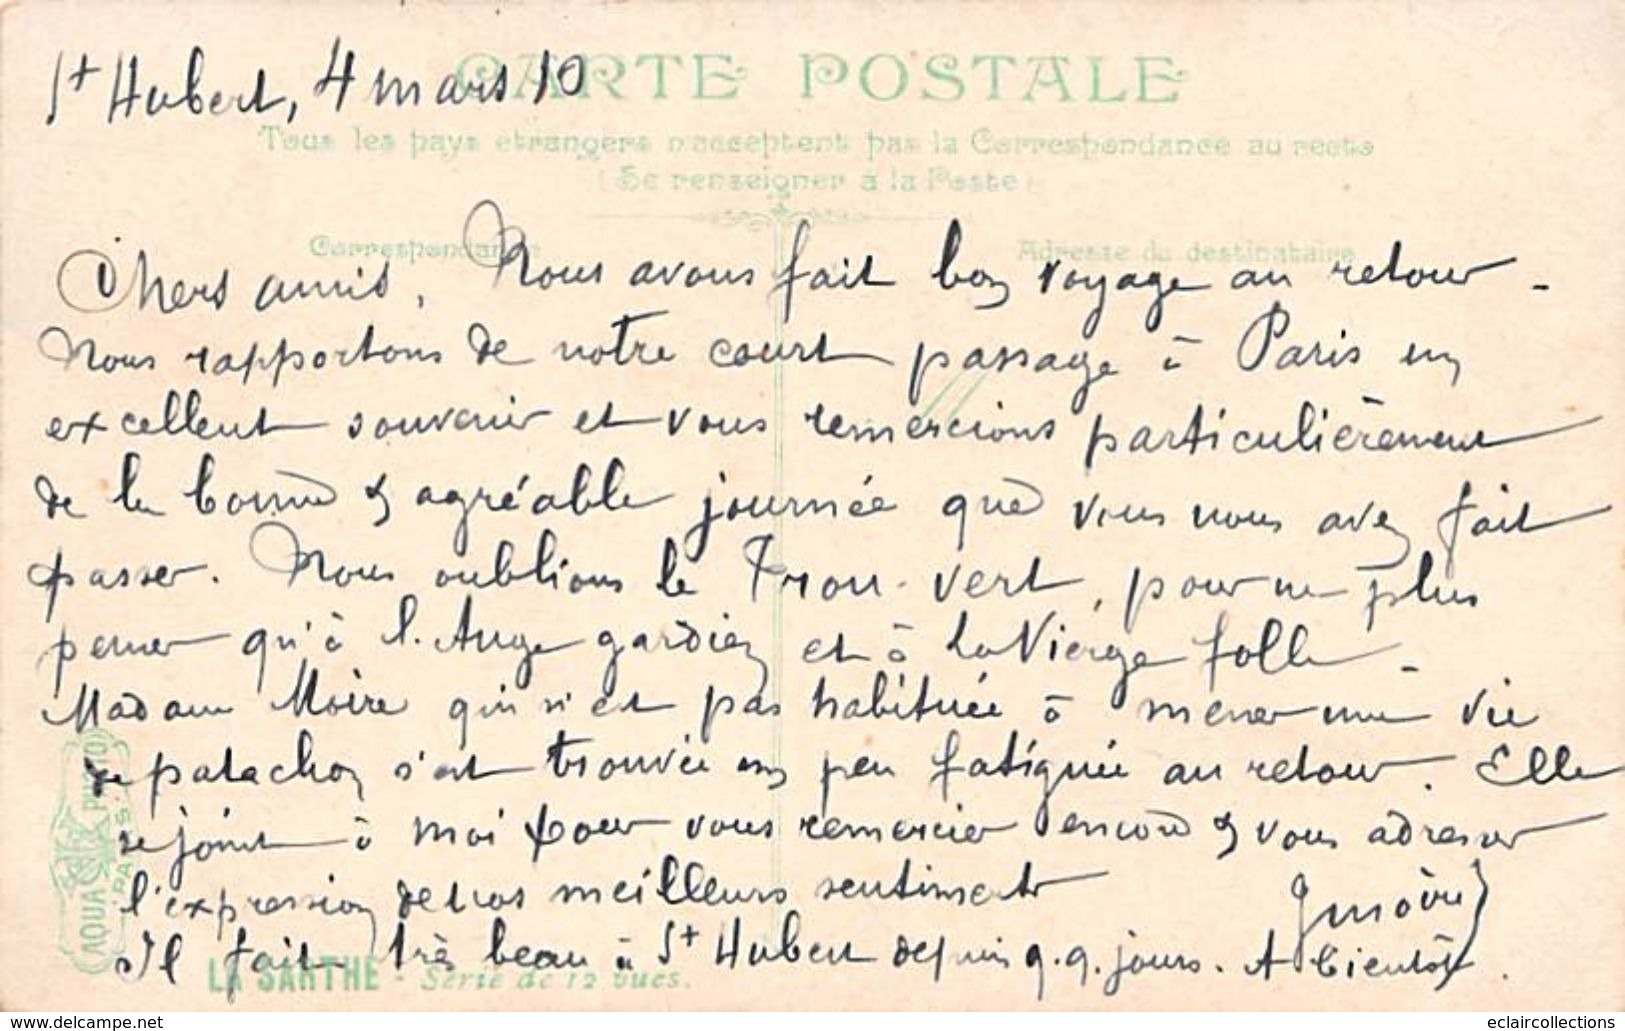 St Hubert, 4 mars 10
CARTE POSTALE
Tous les pays étrangers n'acceptent pas la Correspondance au recto
(Se renseigner à la Poste)
Correspondance
Adresse du destinataire
Chers amis, Nous avons fait bon voyage au retour -
Nous rapportons de notre court passage à Paris un
excellent souvenir et vous remercions particulièrement
de la bonne & agréable journée que vous nous avez fait
passer. Nous oublions le Trou-vert, pour ne plus
penser qu'à l'Ange gardien et à La Vierge folle -
Madame Moire qui n'est pas habituée à mener une vie
de patachon s'est trouvée un peu fatiguée au retour. Elle
se joint à moi pour vous remercier encore & vous adresser
l'expression de nos meilleurs sentiments
Il fait très beau à St Hubert depuis q.q. jours. A bientôt.
AQUA PHOTO
PARIS
LA SARTHE - Série de 12 vues.
www.delcampe.net
eclaircollections